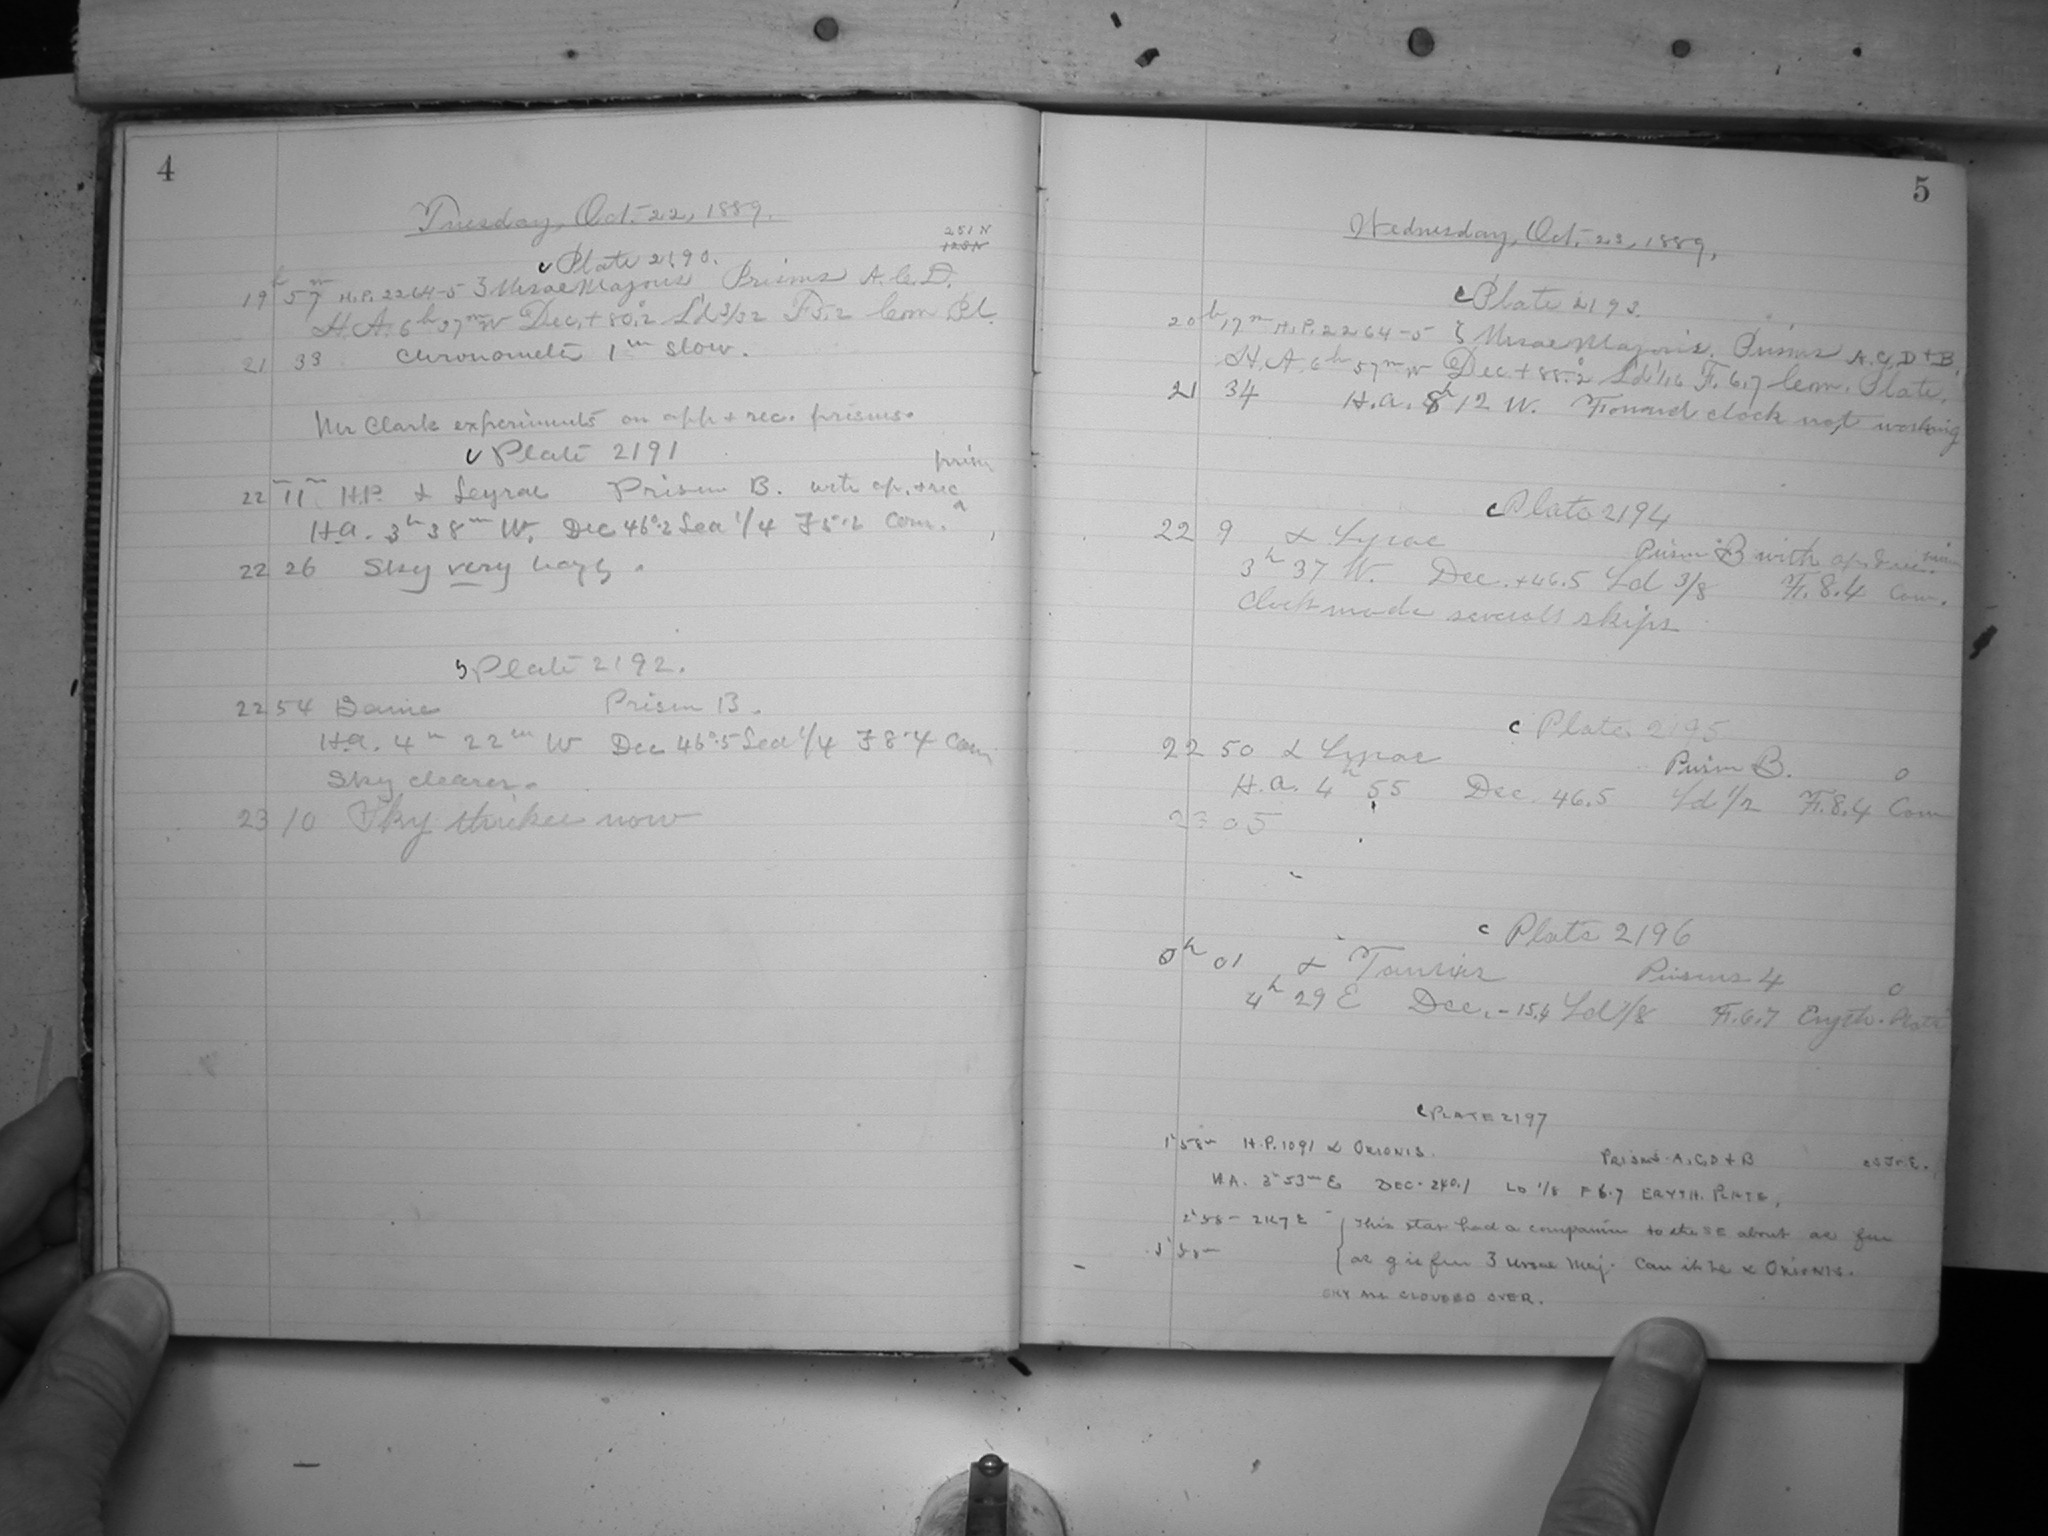 4
Tuesday, Oct. 22, 1889.
251 N
128 N
c Plate 2190.
19h 57m H.P. 2264-5 ζ Ursae Majoris Prisms A.C.D.
H.A. 6h 37m W Dec. + 80.2 L'd 3/32 F5.2 Com Pl.
21 33 Chronometer 1m slow.
Mr Clark experiments on app + rec. prisms.
c Plate 2191
prism
22 11 H.P. α Leyrae Prism B. with ap. + rec
H.a. 3h 38m W. Dec 46°.2 Lea 1/4 F5.2 Com.
22 26 Sky very hazy.
c Plate 2192.
22 54 Same Prism B.
H.a. 4h 22m W Dec 46°.5 Lea 1/4 F 8.4 Com
Sky clearer.
23 10 Sky thicker now
5
Wednesday, Oct. 23, 1889,
c Plate 2193.
20h 17m H.P. 2264-5 ζ Ursae Majoris. Prisms A.C,D + B.
H.A. 6h 57m W Dec. + 88.2 L'd 1/16 F. 6.7 Com. Plate.
21 34 H.a. 8h 12 W. Forward clock not working
c Plate 2194
22 9 α Lyrae Prism B with ap. & rec.
3h 37 W. Dec. +46.5 Ld 3/8 F. 8.4 Com.
Clock made several skips
c Plate 2195
22 50 α Lyrae Prism B.
H.a. 4h 55 Dec. 46.5 Ld 1/2 F. 8.4 Com
23 05
c Plate 2196
0h 01 α Taurius Prisms 4
4h 29 E Dec. - 15.4 Ld 1/8 F. 6.7 Eryth. Plate
c PLATE 2197
1h 58m H.P. 1091 α ORIONIS. PRISMS A, C, D + B
H.A. 3h 53m E DEC. 240.1 LD 1/8 F 6.7 ERYTH. PLATE,
2h 58m 2h 47 E { This star had a companion to the SE about as far
3h 58m { as g is from ζ Ursae Maj. Can it be α ORIONIS.
SKY ALL CLOUDED OVER.